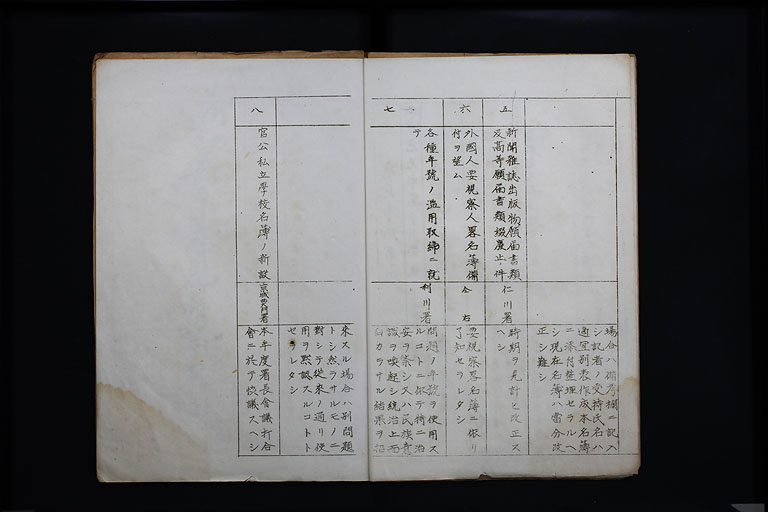 場合ハ備考欄ニ記入
シ記者ノ変持氏名ハ
適宜別表作成本名簿
ニ添付整理セラルヘ
シ現在名簿ハ當分改
正シ難シ
五
新聞雜誌出版物願届書類
及高等願届書類撤廃止ノ件
仁川署
時期ヲ見計ヒ改正ス
ヘシ
六
外國人要視察人畧名簿備
付ヲ望ム
仝右
要視察畧名簿ニ依リ
了知セラレタシ
七
各種年號ノ濫用取締ニ就
テ
利川署
問題ノ年號ヲ使用ス
ルコトニ依テ特ニ治
安ヲ紊シ又ハ民族意
識ヲ喚起シ統治上面
白カラサル結果ヲ招
來スル場合ハ別問題
トシ然ラサルモノニ
對シテ從來ノ通リ使
用ヲ黙認スルコトト
セラレタシ
八
官公私立學校名簿ノ新設
京城西大門署
本年度署長會議打合
會ニ於テ協議スヘシ